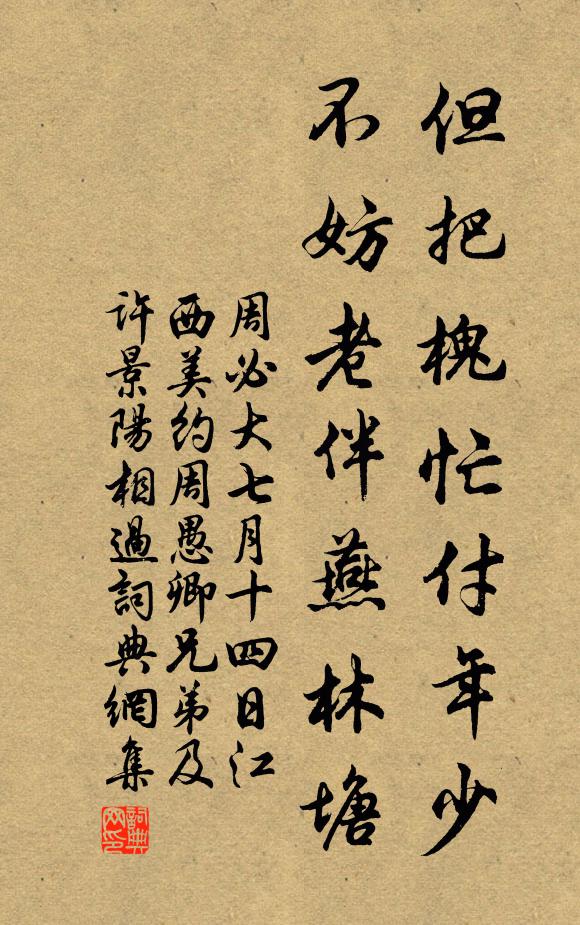 但把槐忙付年少
不妨老伴燕林塘
周必大七月十四日江
西美約周愚卿兄弟及
許景陽相過詞典網集
詞典
网印